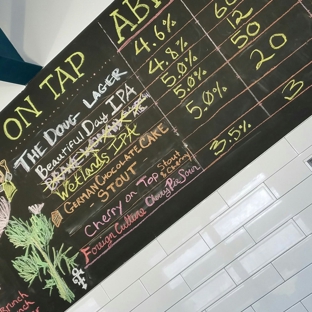 ON TAP AB
THE DOUG LAGER 4.6% 60
Beautiful Day IPA 4.8% 12
Wetlands IPA 5.0% 50
GERMAN CHOCOLATE CAKE STOUT 5.0% 20
Cherry on Top Stout & Cherry 5.0%
Foreign Culture Cherry Pie Sour 3.5% 3
Brunch